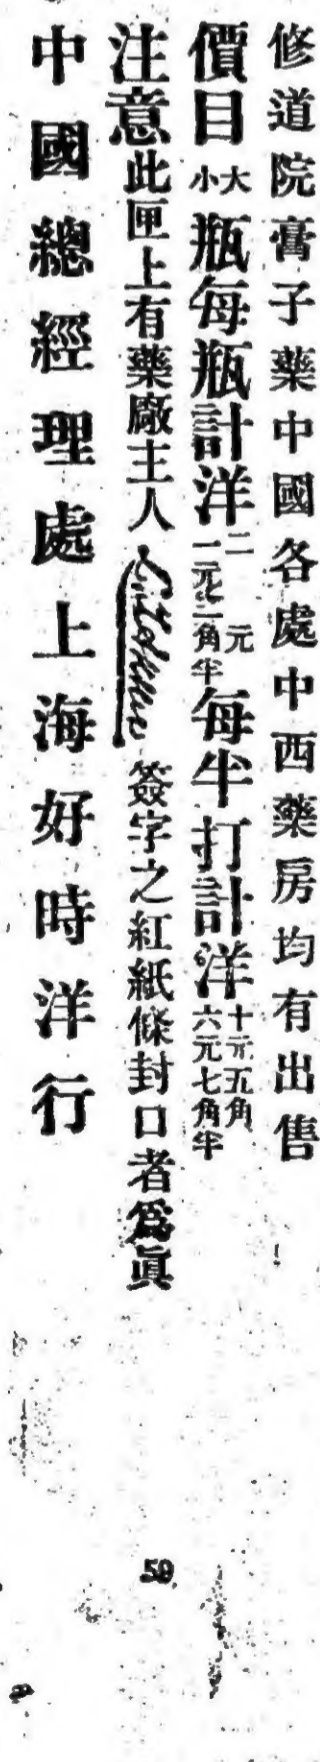 修道院膏子藥中國各處中西藥房均有出售
價目大小瓶每瓶計洋二元一元二角半每半打計洋十元五角六元七角半
注意此匣上有藥廠主人簽字之紅紙條封口者為眞
中國總經理處上海好時洋行
59